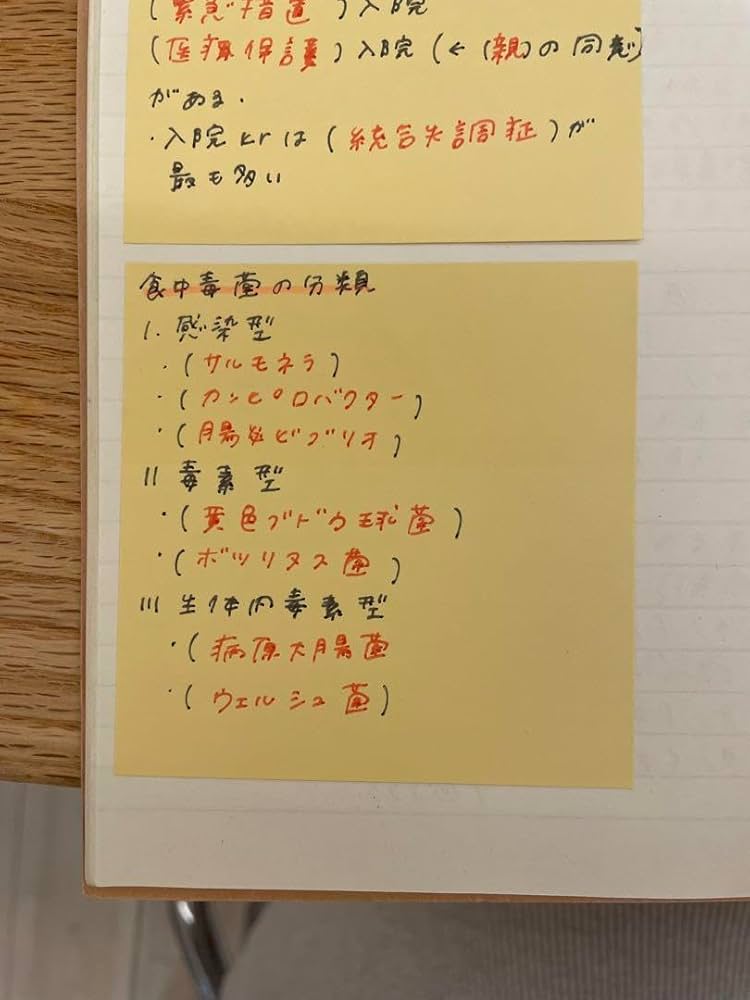 (緊急措置)入院
(医療保護)入院(←(親)の同意)
がある.
・入院とrは(統合失調症)が
最も多い
食中毒菌の分類
I. 感染型
・(サルモネラ)
・(カンピロバクター)
・(腸炎ビブリオ)
II 毒素型
・(黄色ブドウ球菌)
・(ボツリヌス菌)
III 生体内毒素型
・(病原大腸菌
・(ウェルシュ菌)